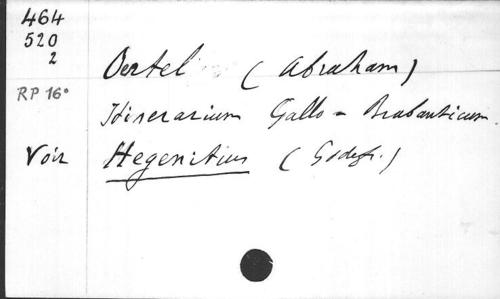 464
520
2
Oertel (Abraham)
RP 16°
Itinerarium Gallo = Brabanticum.
Voir Hegenitius (Godefr.)